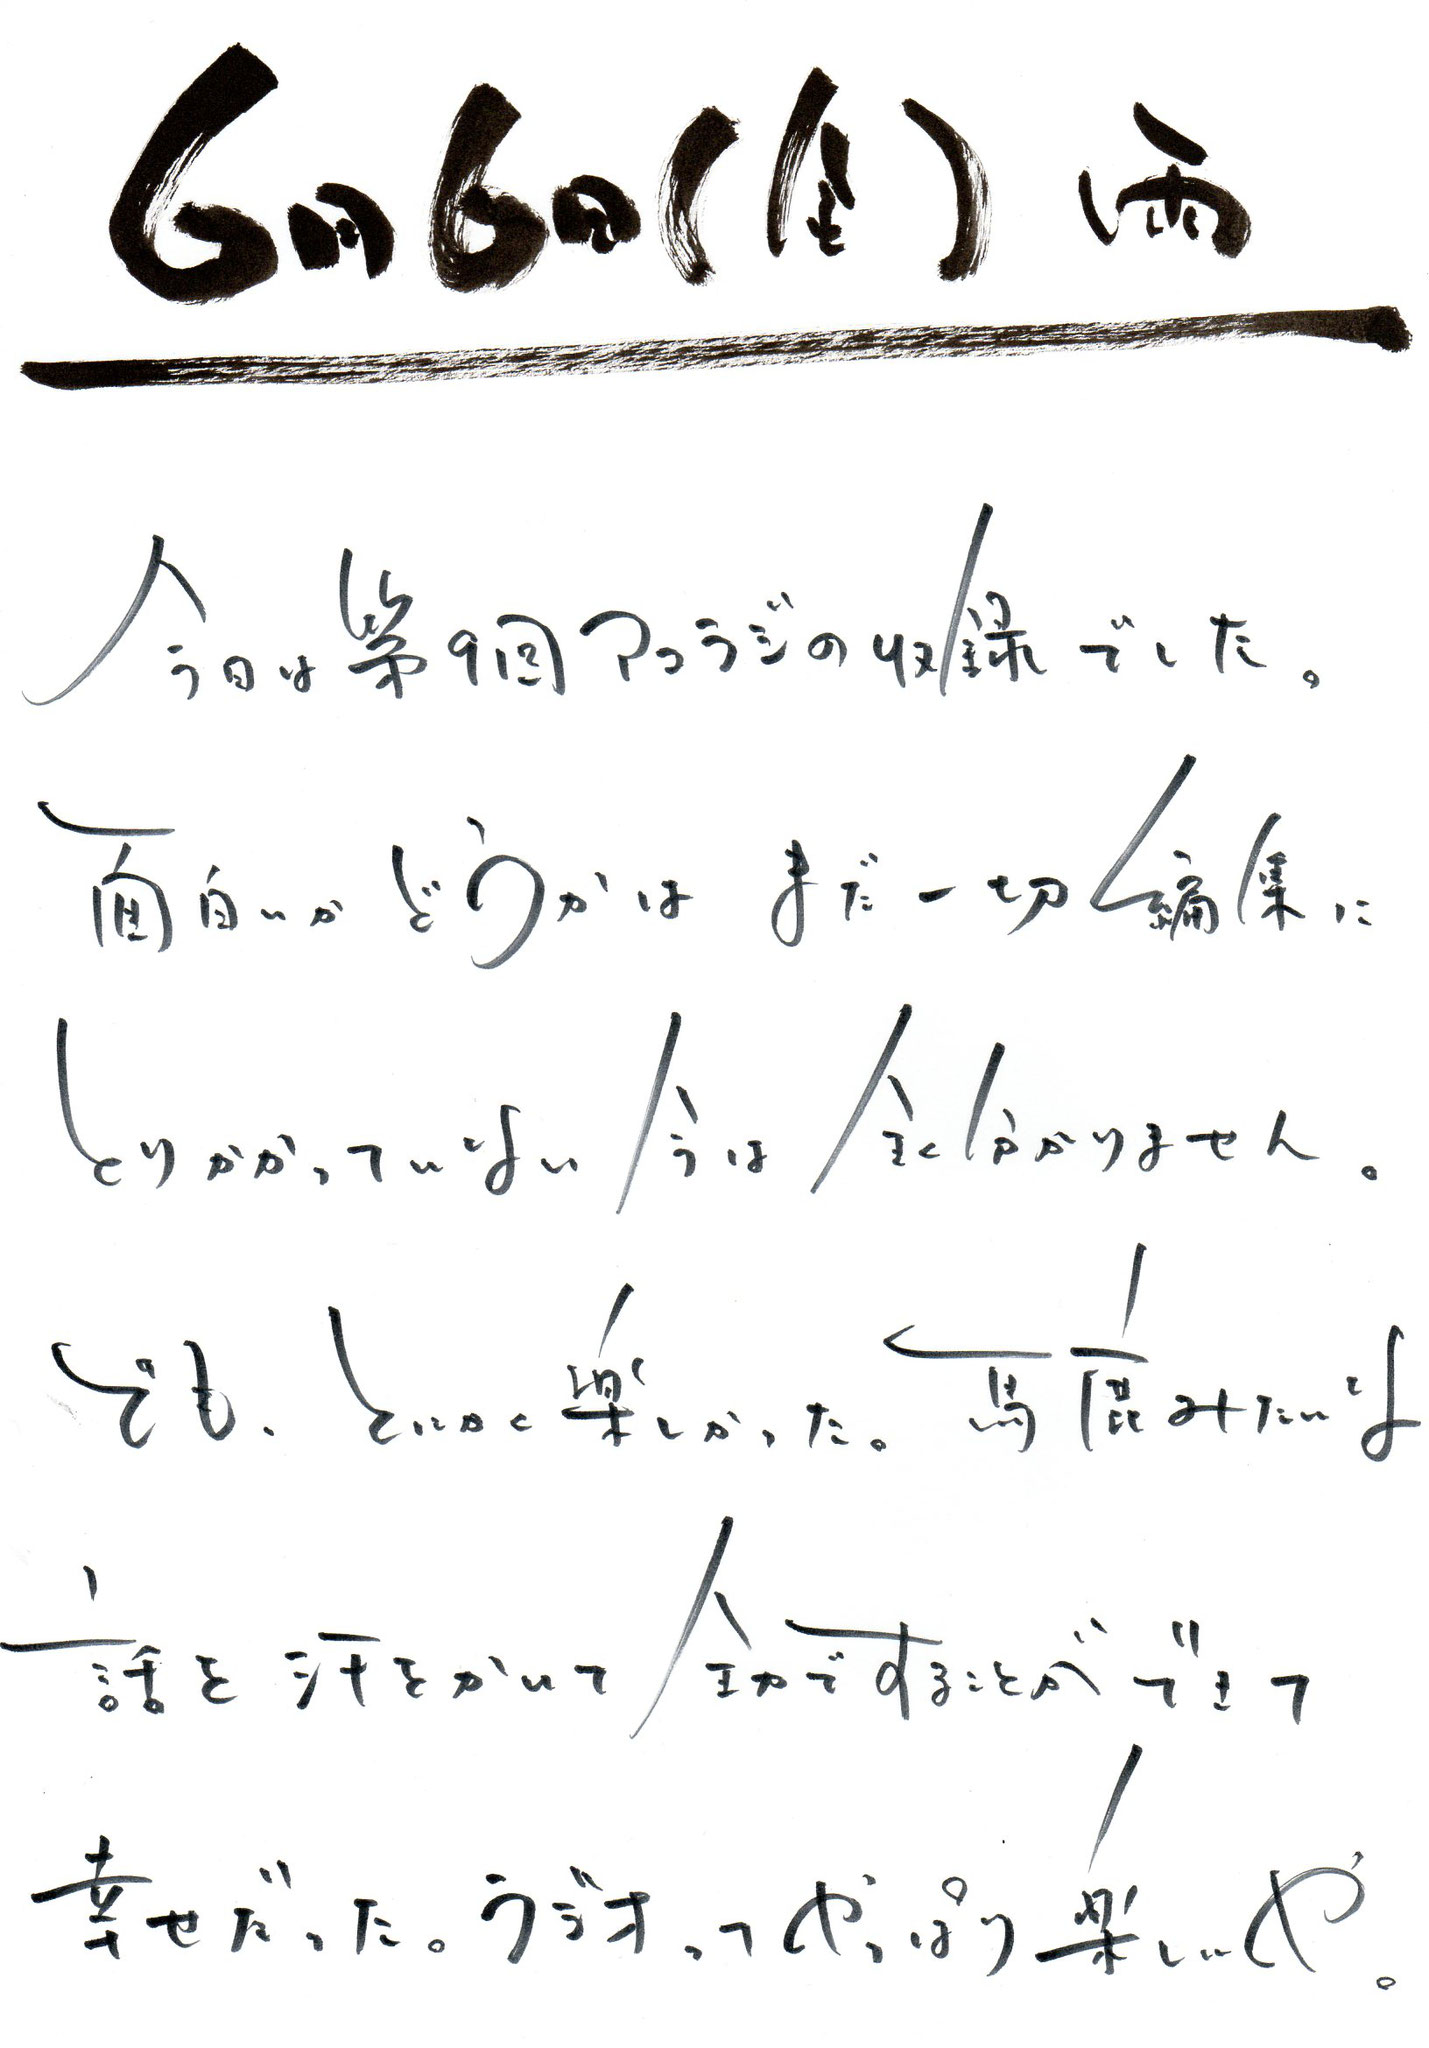 6月6日(金) 雨
今日は第9回アコラジの収録でした。
面白いかどうかは まだ一切編集に
とりかかっていない今は全く分かりません。
でも、とにかく楽しかった。馬鹿みたいな
話を汗をかいて全力ですることができて
幸せだった。ラジオってやっぱり楽しいや。